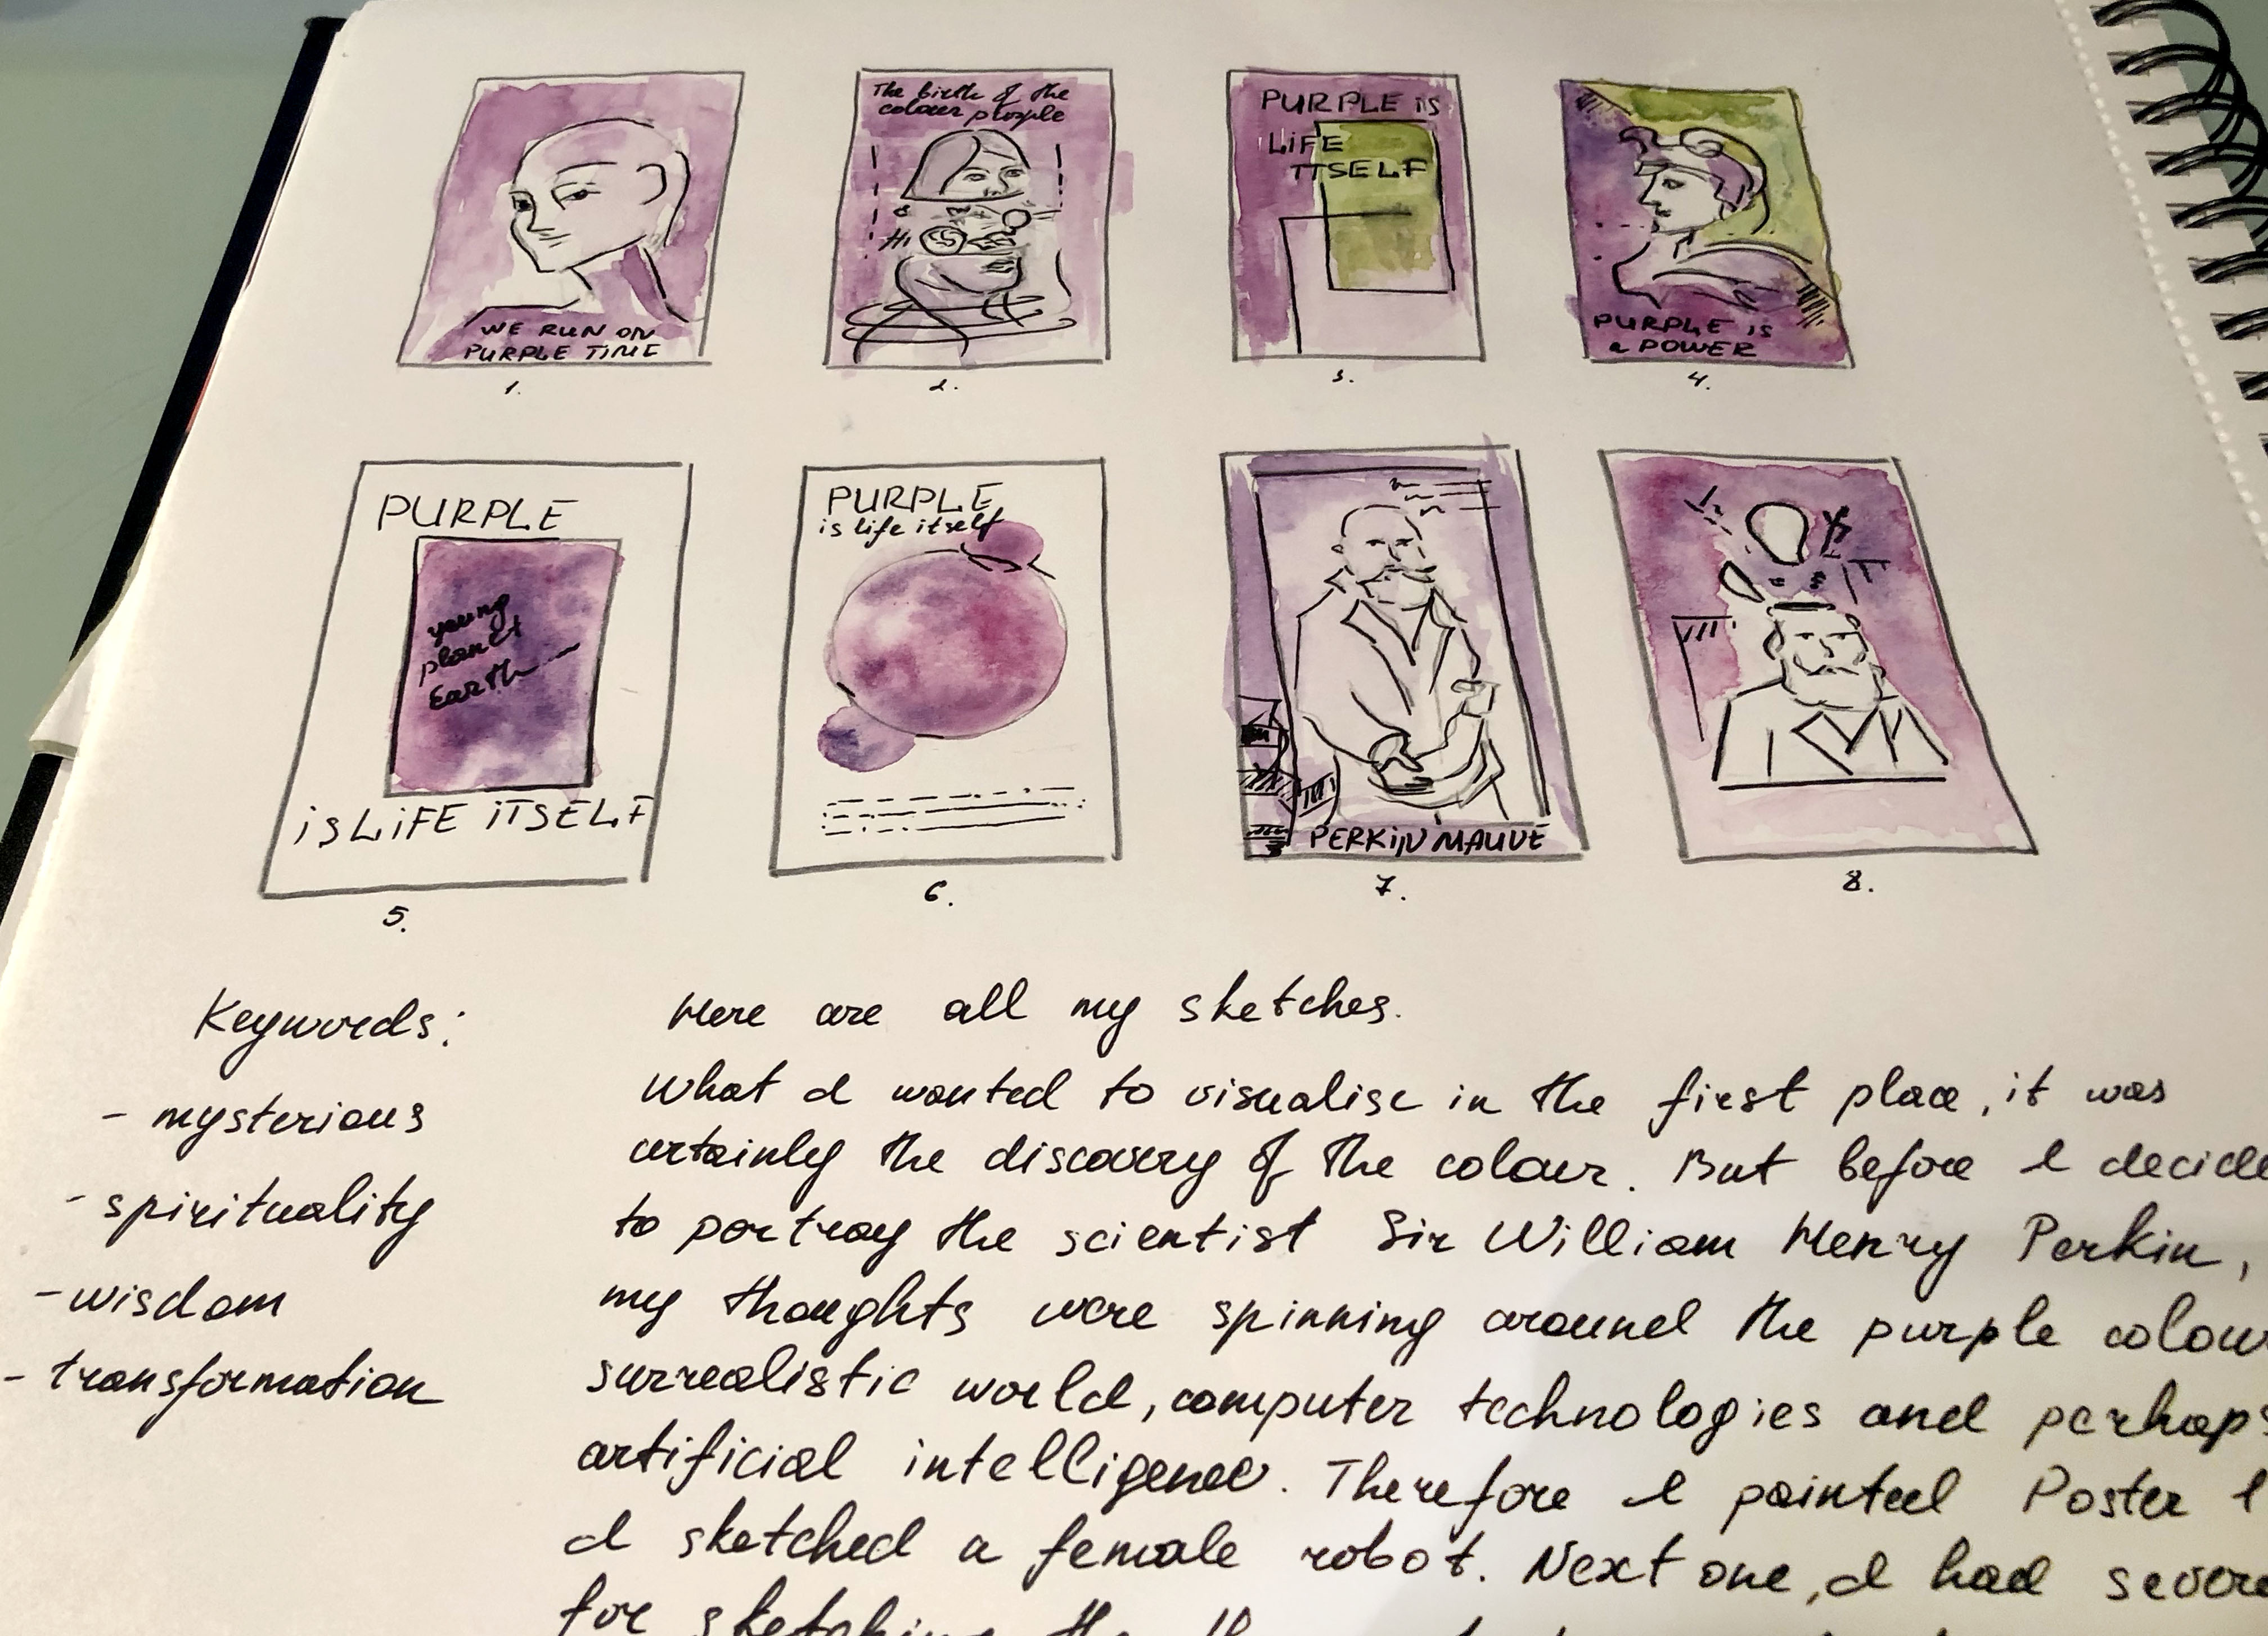 The birth of the
colour purple
Hi
WE RUN ON
PURPLE TIME
1.
2.
PURPLE is
LiFE
ITSELF
3.
PURPLE is
a POWER
4.
PURPLE
young
planet
Earth
is LiFE iTSELF
5.
PURPLE
is life itself
6.
PERKiN MAUVE
7.
8.
Keywords:
- mysterious
- spirituality
- wisdom
- transformation
Here are all my sketches.
What I wanted to visualise in the first place, it was
certainly the discovery of the colour. But before I decide
to portray the scientist Sir William Henry Perkin,
my thoughts were spinning around the purple colou
surrealistic world, computer technologies and perhaps
artificial intelligence. Therefore I painted Poster 1
I sketched a female robot. Next one, I had severe
for sketching the